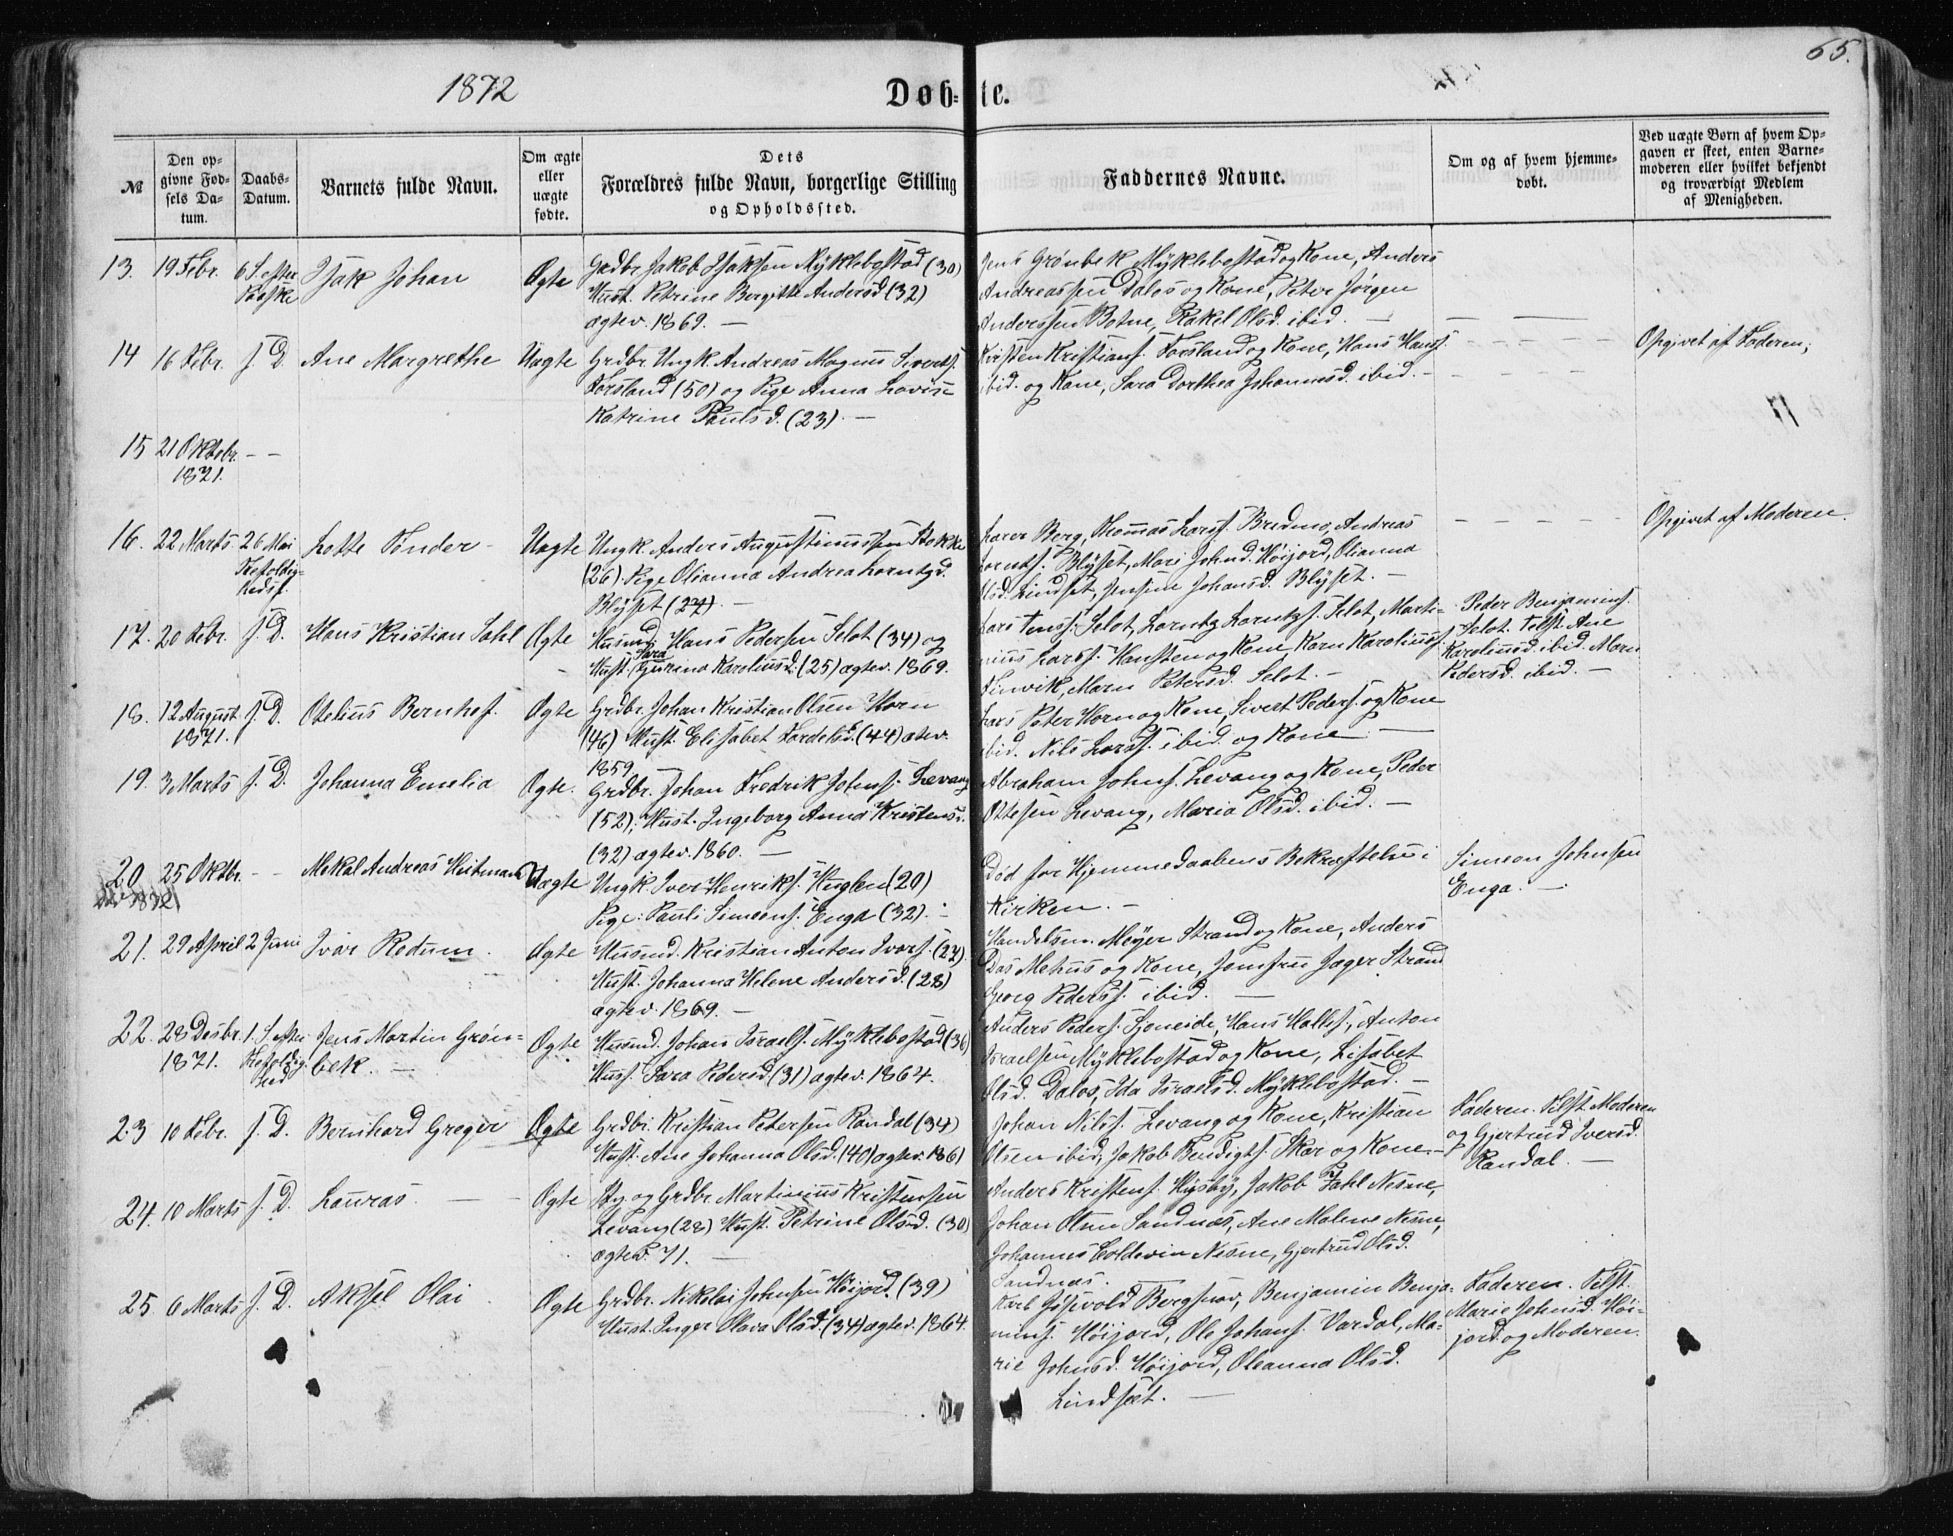 65.
1872
Døb- te.
№
Den op-
givne Fød-
sels Da-
tum.
Daabs-
Datum.
Barnets fulde Navn.
Om ægte
eller
uægte
fødte.
Dets
Forældres fulde Navn, borgerlige Stilling
og Opholdssted.
Faddernes Navne.
Om og af hvem hjemme-
døbt.
Ved uægte Børn af hvem Op-
gaven er skeet, enten Barne-
moderen eller hvilket bekjendt
og troværdigt Medlem
af Menigheden.
13. 19 Febr. 6 S. efter
Paaske
Isak Johan
Ægte
Grdbr. Jakob Isaksen Myklebostad (30)
Hust. Petrine Bergitte Andersd. (32)
ægtev. 1869. —
Jens Grønbek Myklebostad og Kone, Anders
Andreassen Dalos og Kone, Peter Jørgen
Anderssen Botne, Rakel Olsd. ibid. —
14 16 Febr. s. D. Ane Margrethe
Uægte
Grdbr. Ungk. Andreas Magnus Sivertss.
Forsland (50) og Pige Anna Lovis-
Katrine Paulsd. (23). —
Kirsten Kristians. Forsland og Kone, Hans Hanss.
ibid. og Kone, Sara Dorthea Johannesd. ibid. —
Opgivet af Faderen;
15 21 Oktobr. — —
1871.
16. 22 Marts 26 Mai
Trefoldig-
hedsf.
Lotte Tønder —
Uægte
Ungk. Anders Augustinussen Stokke
(26). Pige Olianna Andrea Lorntzd.
Blyset (27). —
Larer Berg, Thomas Larss. Bredmo, Andreas
Lorntss. Blyset, Mari Johnd. Høijord, Olianna
Olsd. Lindset, Jensine Johansd. Blyset. —
Opgivet af Moderen.
17. 20 Febr. s. D. Hans Kristian Sahl
Ægte
Husmd. Hans Pedersen Selot (34) og
Hust. Sara Gurina Karoliusd. (25) ægtev. 1869.
Lars Jenss. Selot, Lorntz Lorntzs. Selot, Marti-
nius Larss. Hansten og Kone, Korn Karoliuss.
Finvik, Maren Petersd. Selot. —
Peder Benjamins.
Selot. Tilst. Ane
Karoliusd. ibid. Maren
Pedersd. ibid. —
18. 12 August s. D. Otelius Bernhof.
1871.
Ægte
Grdbr. Johan Kristian Olsen Horn
(46) Hust. Elisabet Tordelsd. (44) ægtev.
1859. —
Lars Peter Horn og Kone, Sivert Peders. og Kone
ibid. Nils Larss. ibid. og Kone —
19. 3 Marts s. D. Johanna Emelia
Ægte.
Grdbr. Johan Fredrik Johnss. Levang
(52); Hust. Ingeborg Anna Kristensd.
(32) ægtev. 1860. —
Abraham Johnss. Levang og Kone, Peder
Ottesen Levang, Maria Olsd. ibid. —
20 25 Oktbr. — —
1871
Mekal Andreas Heitmann
Uægte
Ungk. Iver Henriks. Huglen (20)
Pige: Pauli Simeons. Enga (32). —
Død før Hjemmedaabens Bekræftelse i
Kirken. —
Simeon Johnsen
Enga. —
21. 29 April 2 Juni Ivar Redum.
Ægte
Husmd. Kristian Anton Ivars. (27).
Hust. Johanna Helene Andersd. (28)
ægtev. 1869. —
Handelsm. Meyer Strand og Kone, Anders
Das Mehus og Kone, Jomfru Jæger Strand
Georg Pederss. ibid. —
22. 28 Desbr. 1. S. efter
1871. Trefoldig-
hed
Jens Martin Grøn-
bek. —
Ægte
Husmd. Johan Israels. Myklebostad (36)
Hust. Sara Pedersd. (31) ægtev. 1864.
Anders Peders. Sjoneide, Hans Halles., Anton
Israelsen Myklebostad og Kone, Lisabet
Olsd. Dalos, Ida Israelsd. Myklebostad. —
23 10 Febr. s. D. Bernhard Greger
Ægte
Grdbr. Kristian Petersen Randal (34)
Hust. Ane Johanna Olsd. (40) ægtev. 1861
Johan Nilss. Levang og Kone, Kristian
Olsen ibid, Jakob Bendigts. Skar og Kone. —
Faderen. Tilst. Moderen
og Gjertrud Iversd.
Randal. —
24. 10 Marts s. D. Lauras. —
Ægte
Sty. og Grdbr. Martinius Kristensen
Levang (28) Hust. Petrine Olsd. (30)
ægtev. 71. —
Anders Kristens. Husby, Jakob Zahl Nesne,
Johan Olsen Sandnes, Ane Malene Nesne,
Johannes Coldevin Nesne, Gjertrud Olsd.
Sandnæs.
25. 6 Marts s. D. Aksel Olai
Ægte
Grdbr. Nikolai Johnsen Høijord. (39)
Hust. Inger Olava Olsd. (34) ægtev. 1864.
Karl Josevold Bergsnov, Benjamin Benja-
mins. Høijord, Ole Johans. Vardal, Ma-
rie Johnsd. Høijord, Oleanna Olsd.
Lindset. —
Faderen. Tilst.
Marie Johnsd. Høi-
jord og Moderen.